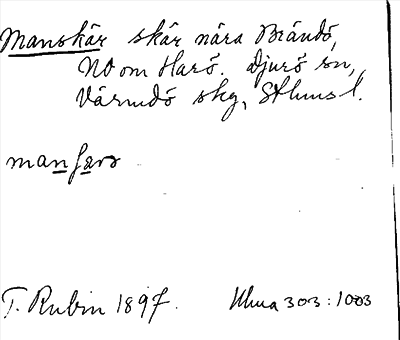 Manskär skär nära Brändö,
NO om Harö. Djurö sn,
Värmdö skg, Sthms l.
manfars
T. Rubin 1897. Uhua 303:1003